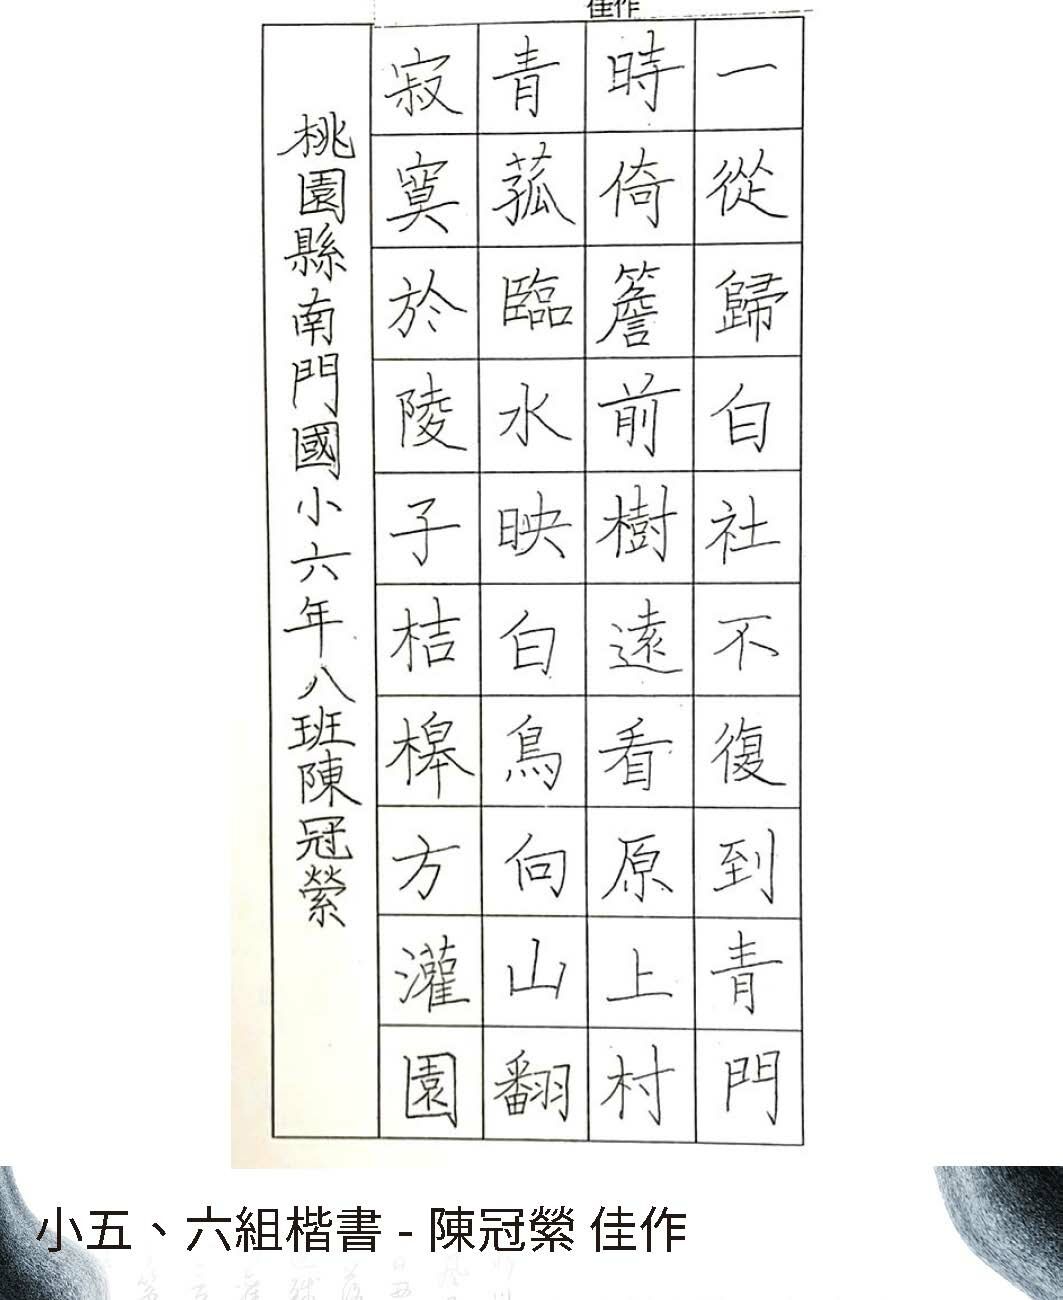 佳作
一從歸白社不復到青門
時倚簷前樹遠看原上村
青菰臨水映白鳥向山翻
寂寞於陵子桔槔方灌園
桃園縣南門國小六年八班陳冠縈
小五、六組楷書 - 陳冠縈 佳作